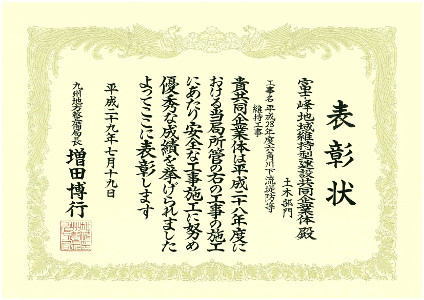 表彰状
富士峰地域維持型建設共同企業体 殿
土木部門
工事名 平成28年度六角川下流堤防等
維持工事
貴共同企業体は平成二十八年度に
おける当局所管の右の工事の施工
にあたり安全な工事施工に努め
優秀な成績を挙げられました
よってここに表彰します
平成二十九年七月十九日
九州地方整備局長
増田博行